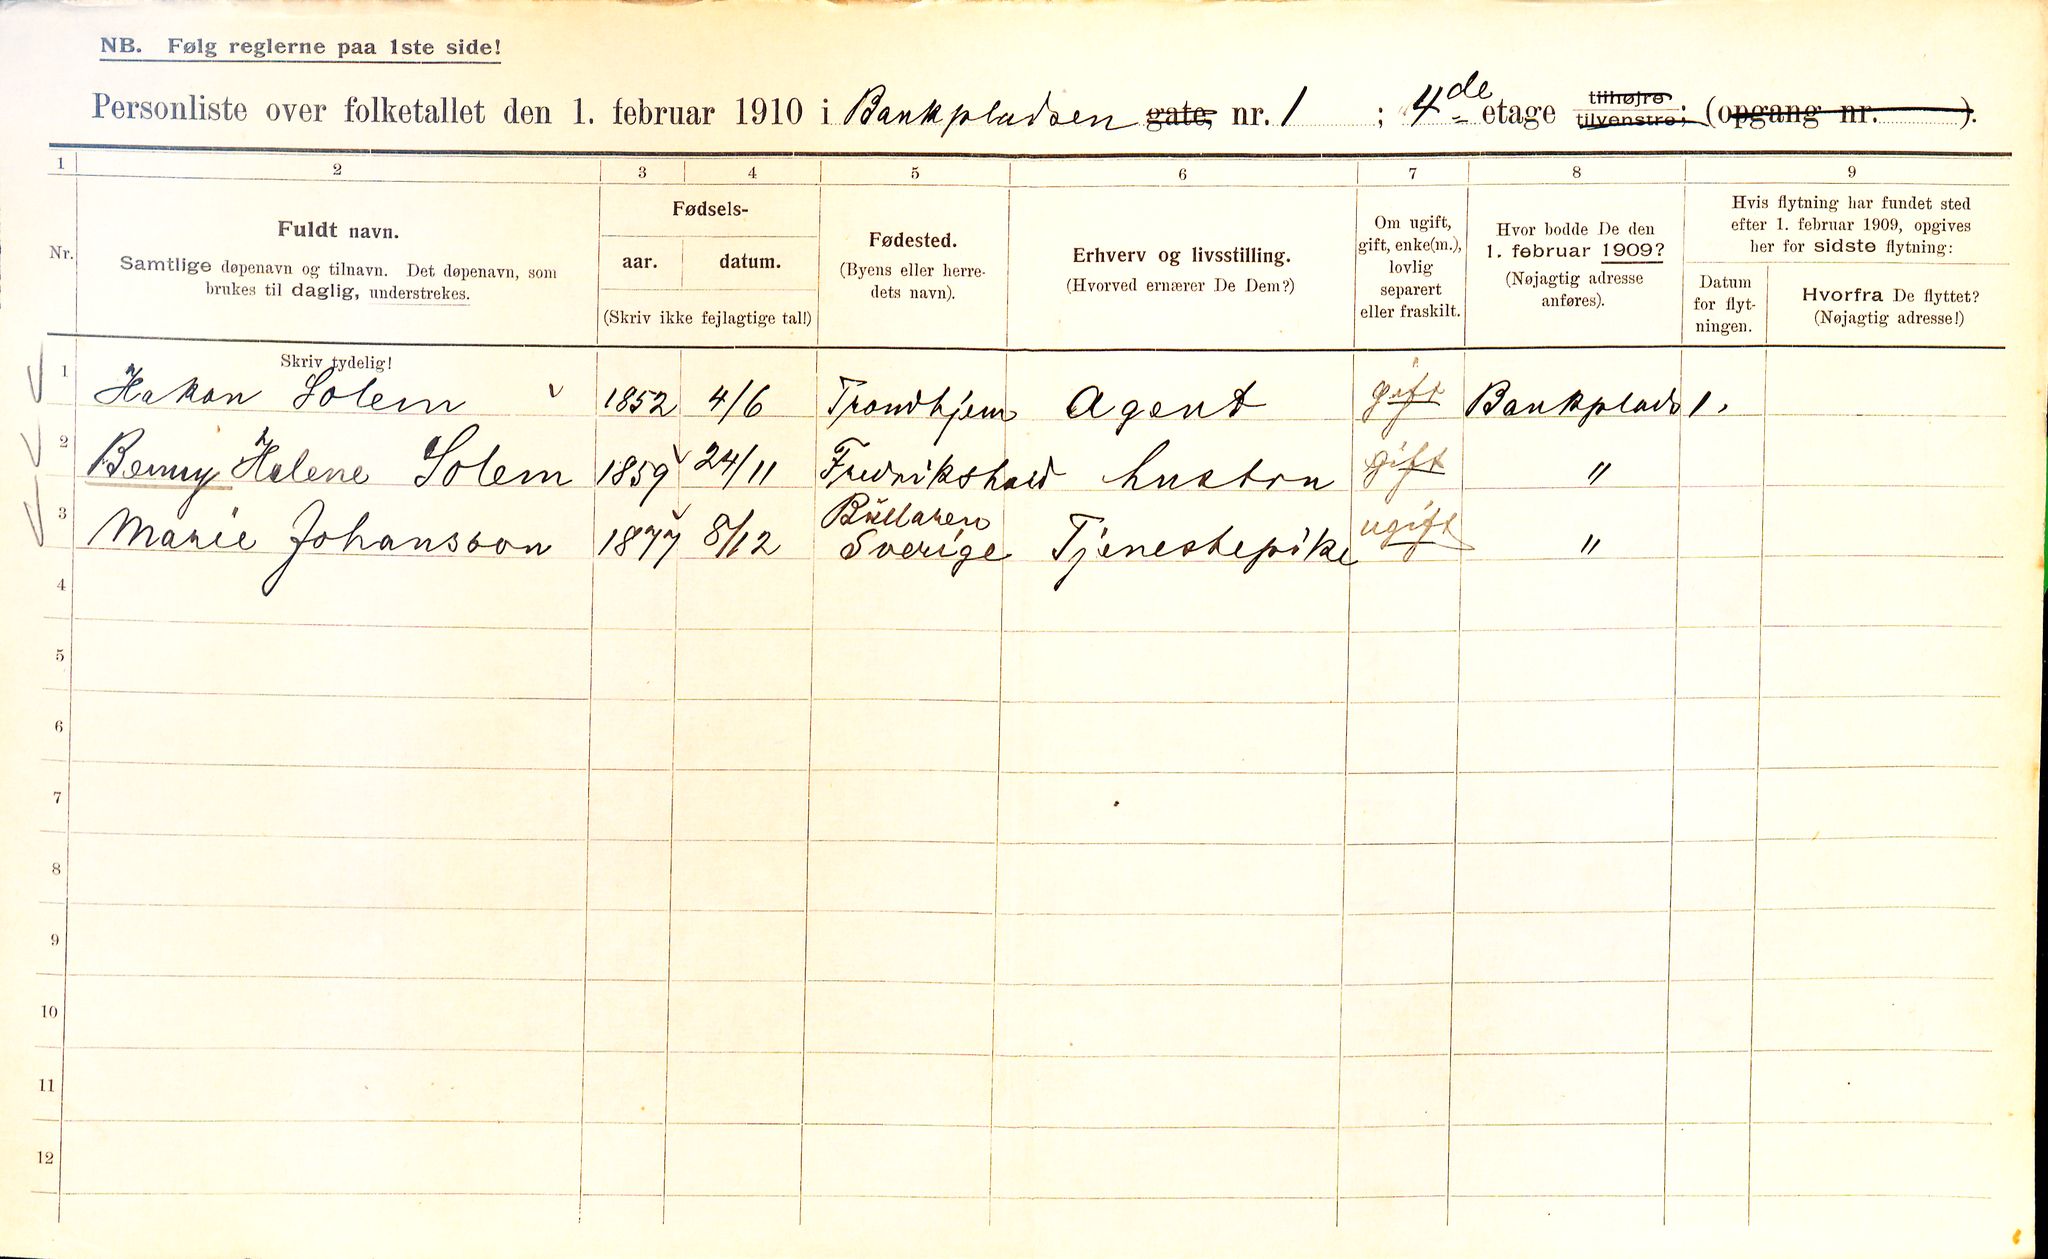 NB. Følg reglerne paa 1ste side!
Personliste over folketallet den 1. februar 1910 i Bankpladsen gate, nr. 1 ; 4de etage tilhøjre tilvenstre; (opgang nr. ).
1 2 3 4 5 6 7 8 9
Nr.
Fuldt navn.
Samtlige døpenavn og tilnavn. Det døpenavn, som
brukes til daglig, understrekes.
Fødsels-
aar. datum.
(Skriv ikke fejlagtige tal!)
Fødested.
(Byens eller herre-
dets navn).
Erhverv og livsstilling.
(Hvorved ernærer De Dem?)
Om ugift,
gift, enke(m.),
lovlig
separert
eller fraskilt.
Hvor bodde De den
1. februar 1909?
(Nøjagtig adresse
anføres).
Hvis flytning har fundet sted
efter 1. februar 1909, opgives
her for sidste flytning:
Datum
for flyt-
ningen.
Hvorfra De flyttet?
(Nøjagtig adresse!)
Skriv tydelig!
1 Hakon Solem 1852 4/6 Trondhjem Agent gift Bankplads 1.
2 Benny Helene Solem 1859 24/11 Fredrikshald hustru gift "
3 Marie Johansson 1877 8/12 Büllaren Sverige Tjenestepike ugift "
4
5
6
7
8
9
10
11
12